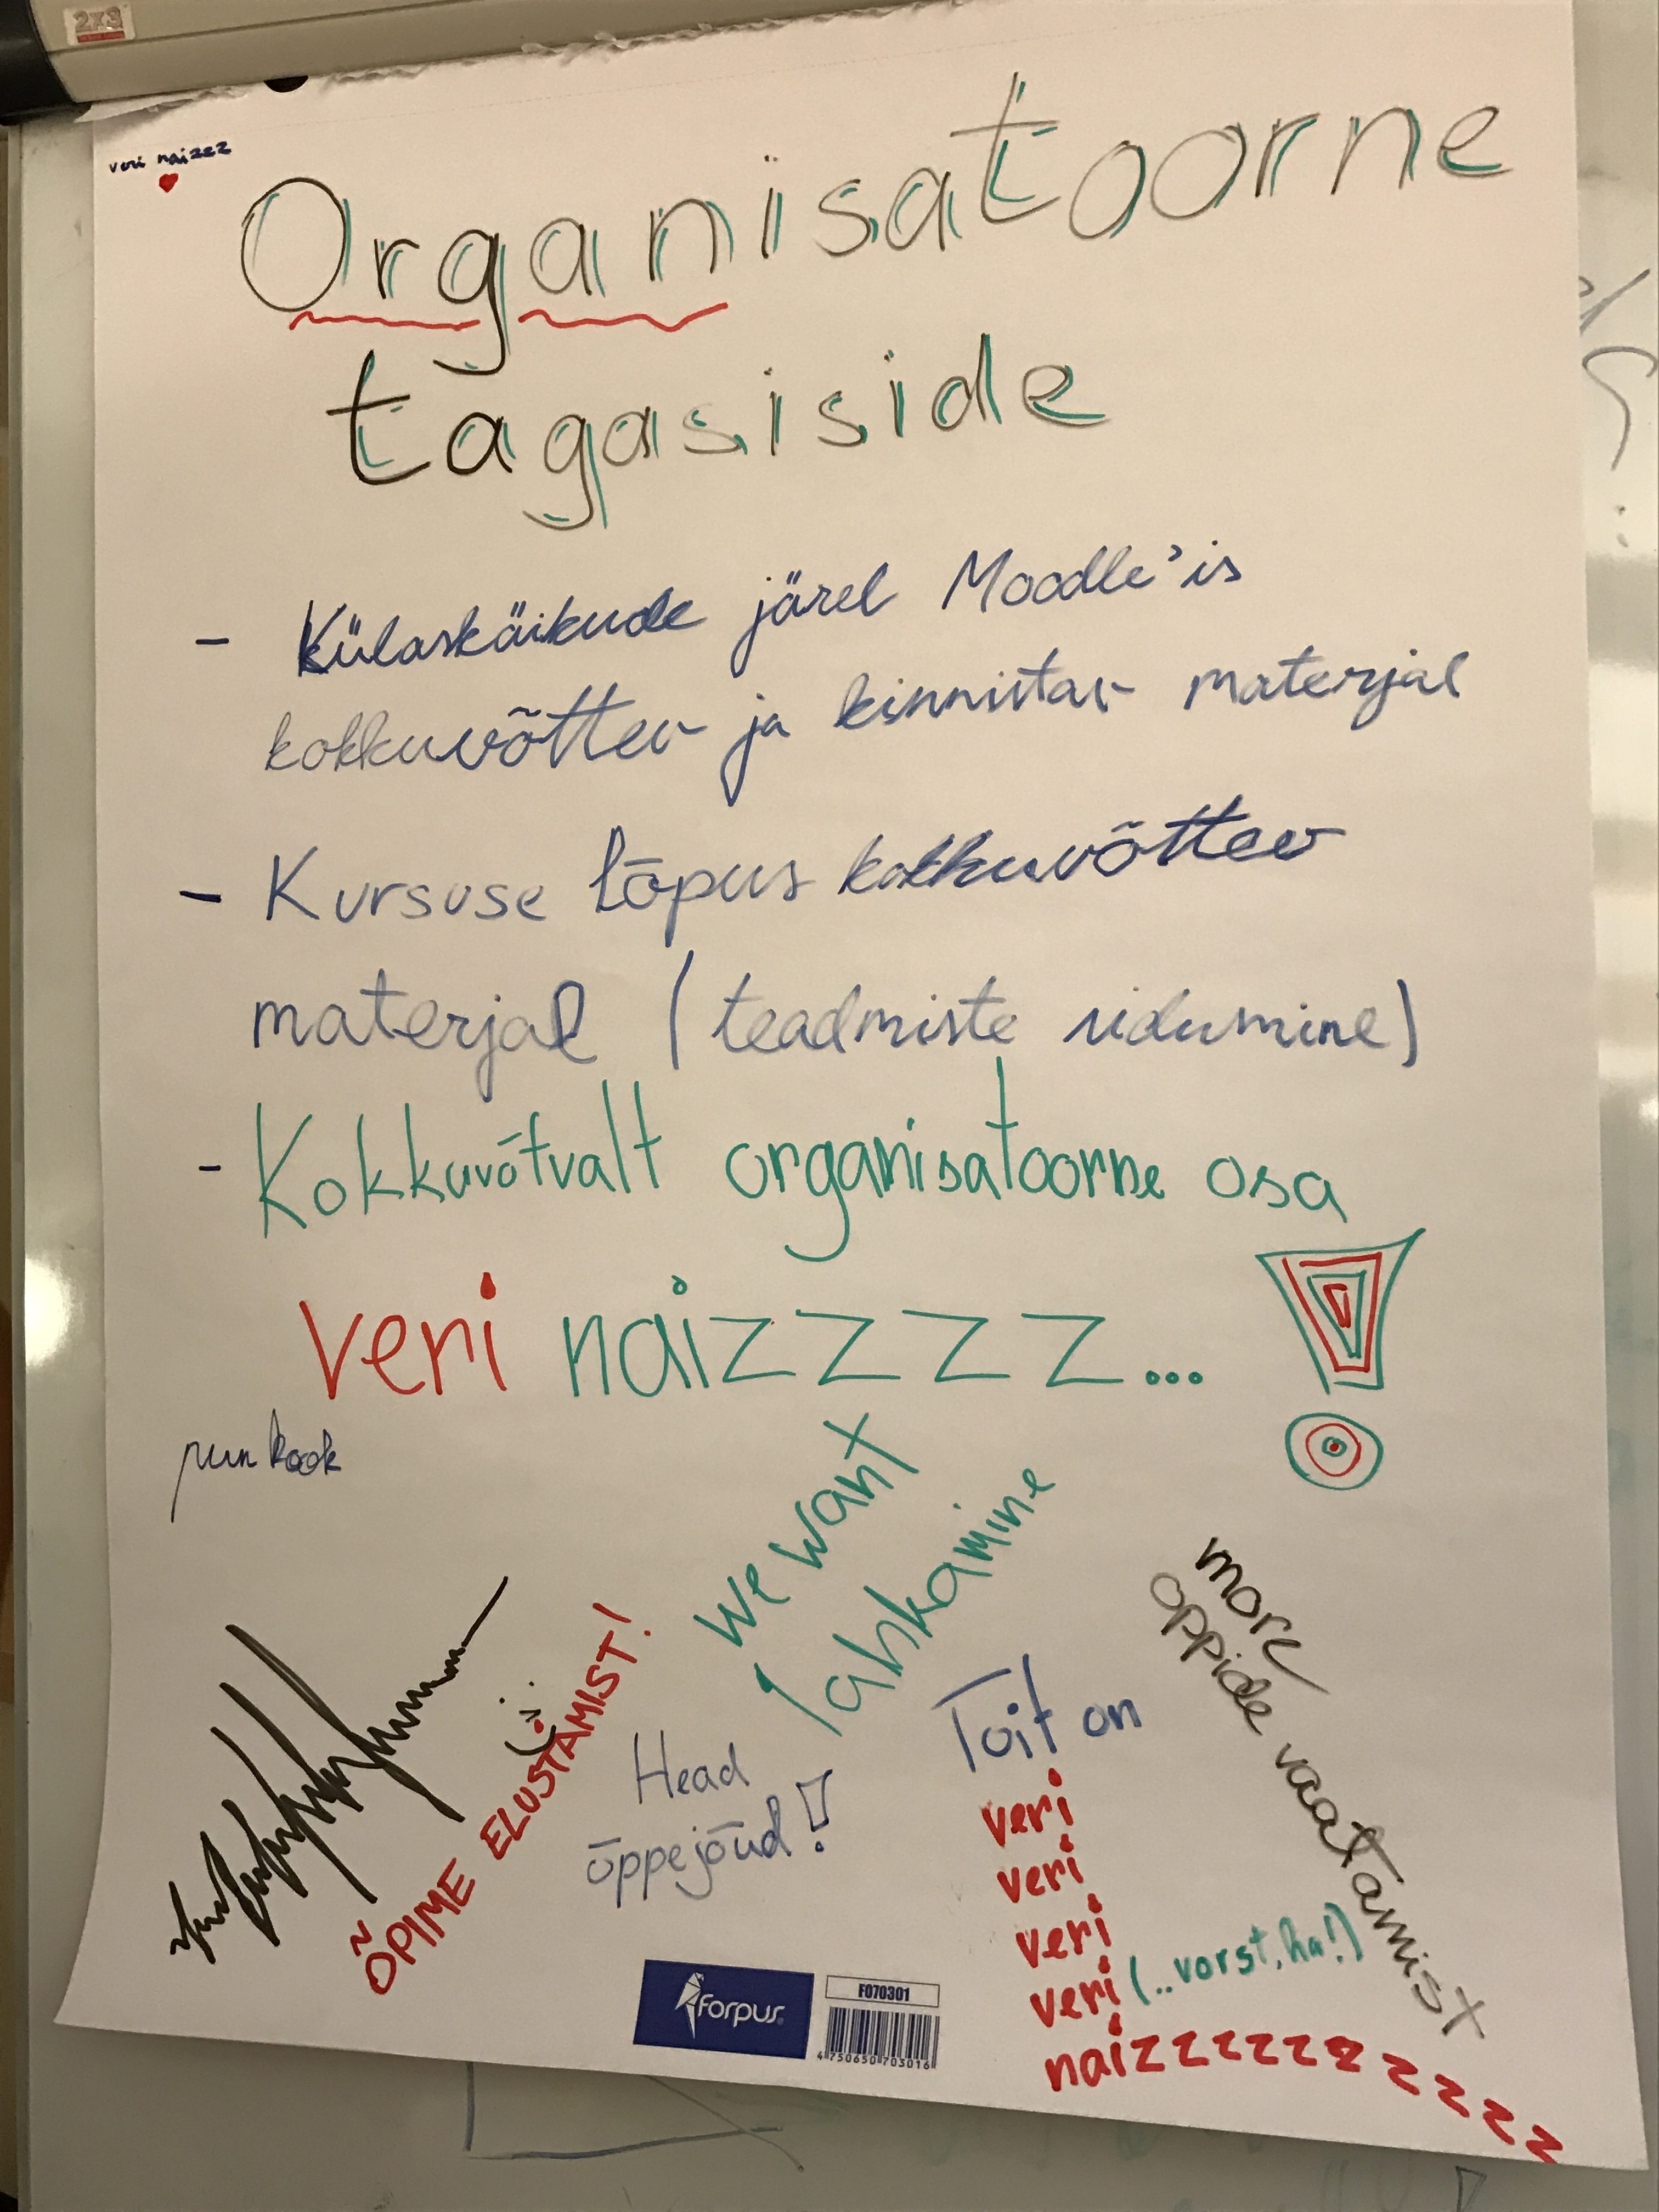 2x3
veri naizzz
Organisatoorne
tagasiside
- Külaskäikude järel Moodle'is
kokkuvõttev ja kinnistav materjal
- Kursuse lõpus kokkuvõttev
materjal (teadmiste sidumine)
- Kokkuvõtvalt organisatoorne osa
veri naizzzz... !
we want
lahkamine
more
oppide vaatamist
ÕPIME ELUSTAMIST!
Head
õppejõud!
Toit on
veri
veri
veri
veri (..vorst, ha!)
naizzzzzzzzzz
forpus
F070301
4750650703016